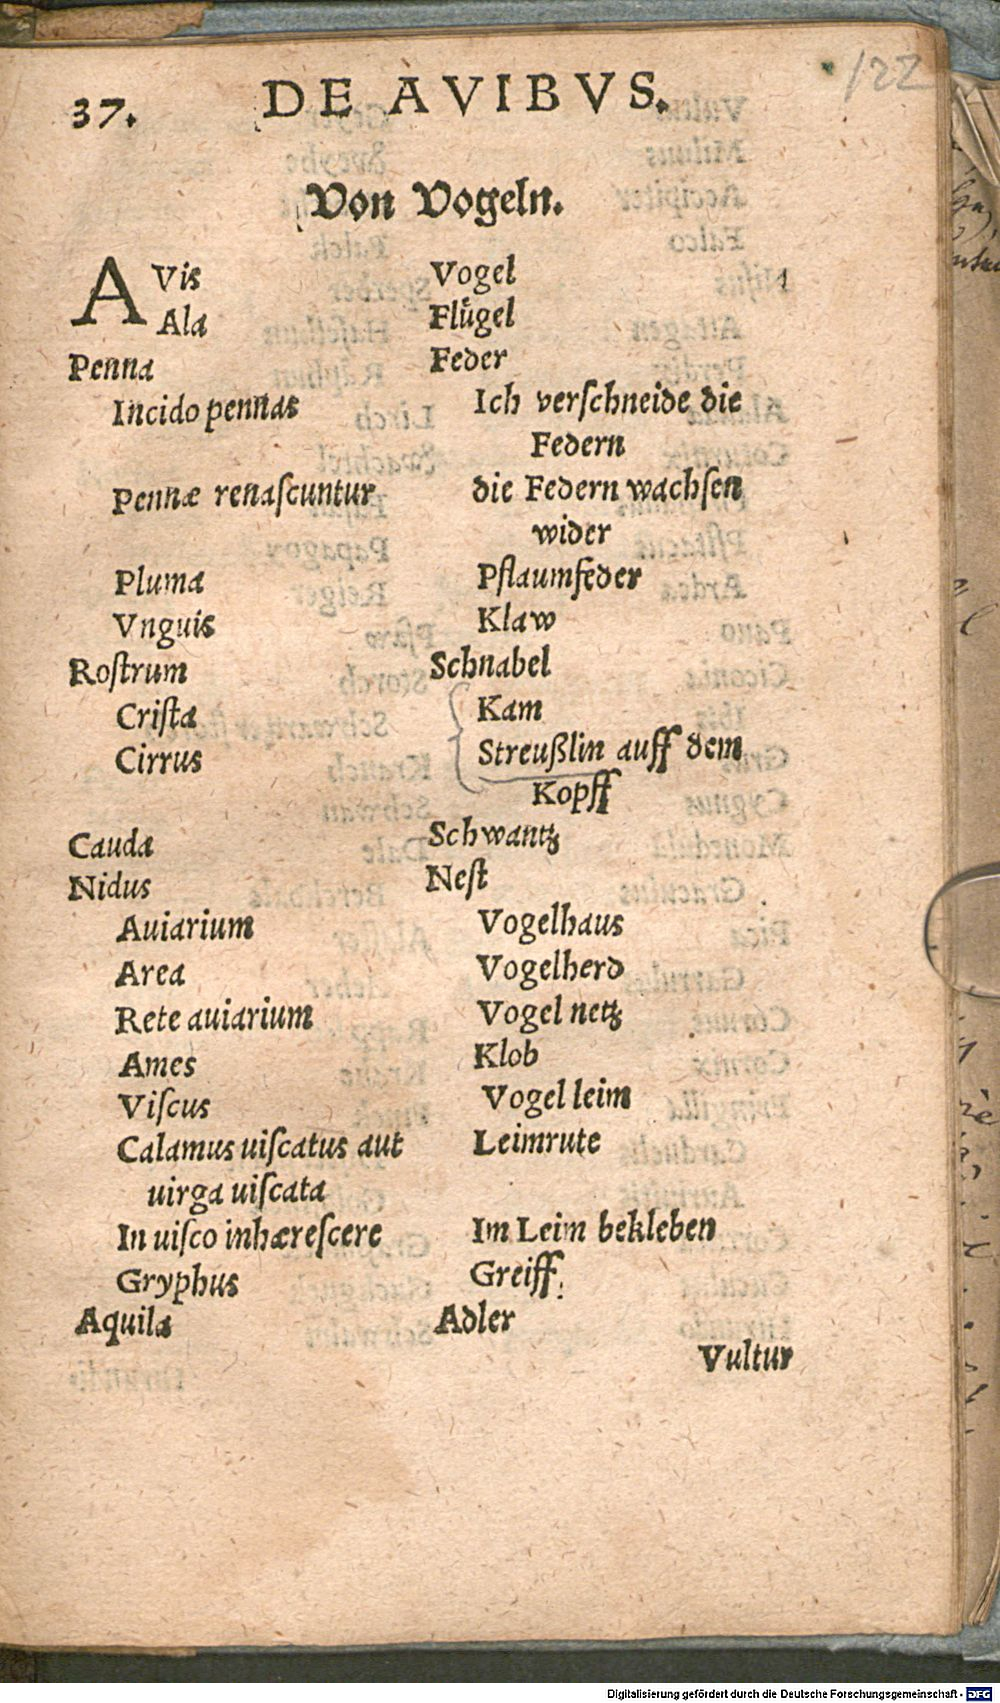 37. DE AVIBVS. 122
Von Vogeln.
AVis Vogel
Ala Flügel
Penna Feder
Incido pennas Ich verſchneide die
Federn
Pennæ renaſcuntur die Federn wachſen
wider
Pluma Pflaumfeder
Vnguis Klaw
Roſtrum Schnabel
Criſta Kam
Cirrus Streußlin auff dem
Kopff
Cauda Schwantz
Nidus Neſt
Auiarium Vogelhaus
Area Vogelherd
Rete auiarium Vogel netz
Ames Klob
Viſcus Vogel leim
Calamus uiſcatus aut Leimrute
uirga uiſcata
In uiſco inhæreſcere Im Leim bekleben
Gryphus Greiff.
Aquila Adler
Vultur
Digitalisierung gefördert durch die Deutsche Forschungsgemeinschaft - DFG